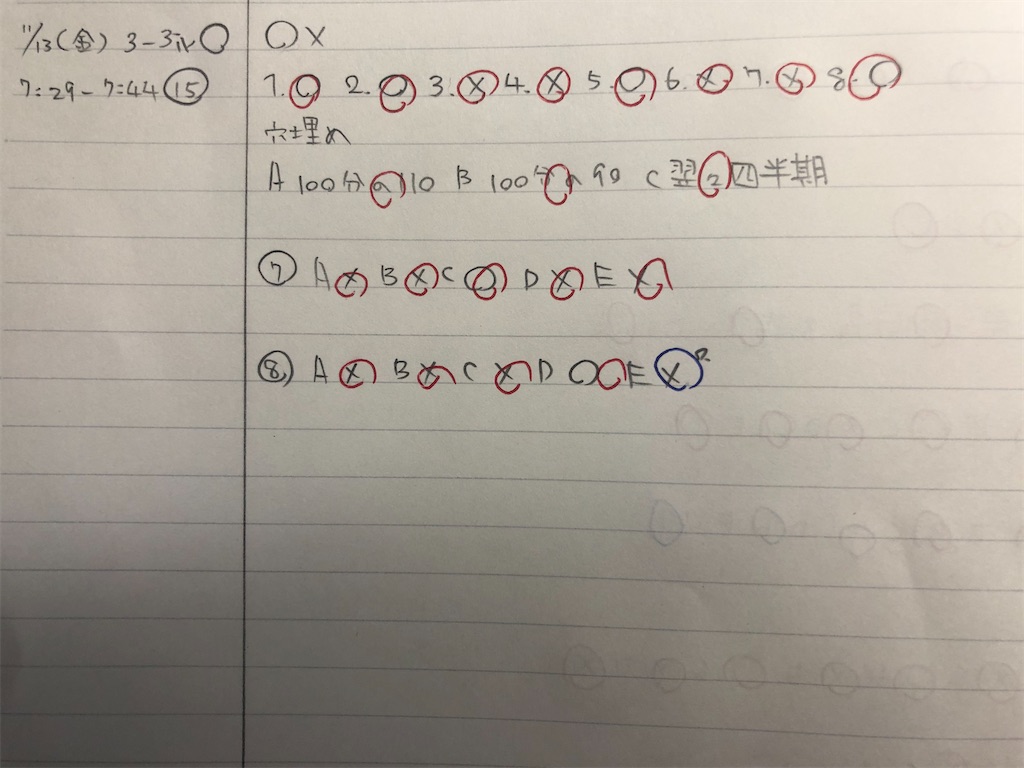 11/13(金) 3-3ル○
7:29-7:44 ⑮
○×
1.○ 2.○ 3.× 4.× 5.○ 6.× 7.× 8.○
穴埋め
A 100分の110 B 100分の90 C 翌2四半期
⑦ A× B× C○ D× E×
⑧ A× B× C× D○ E×